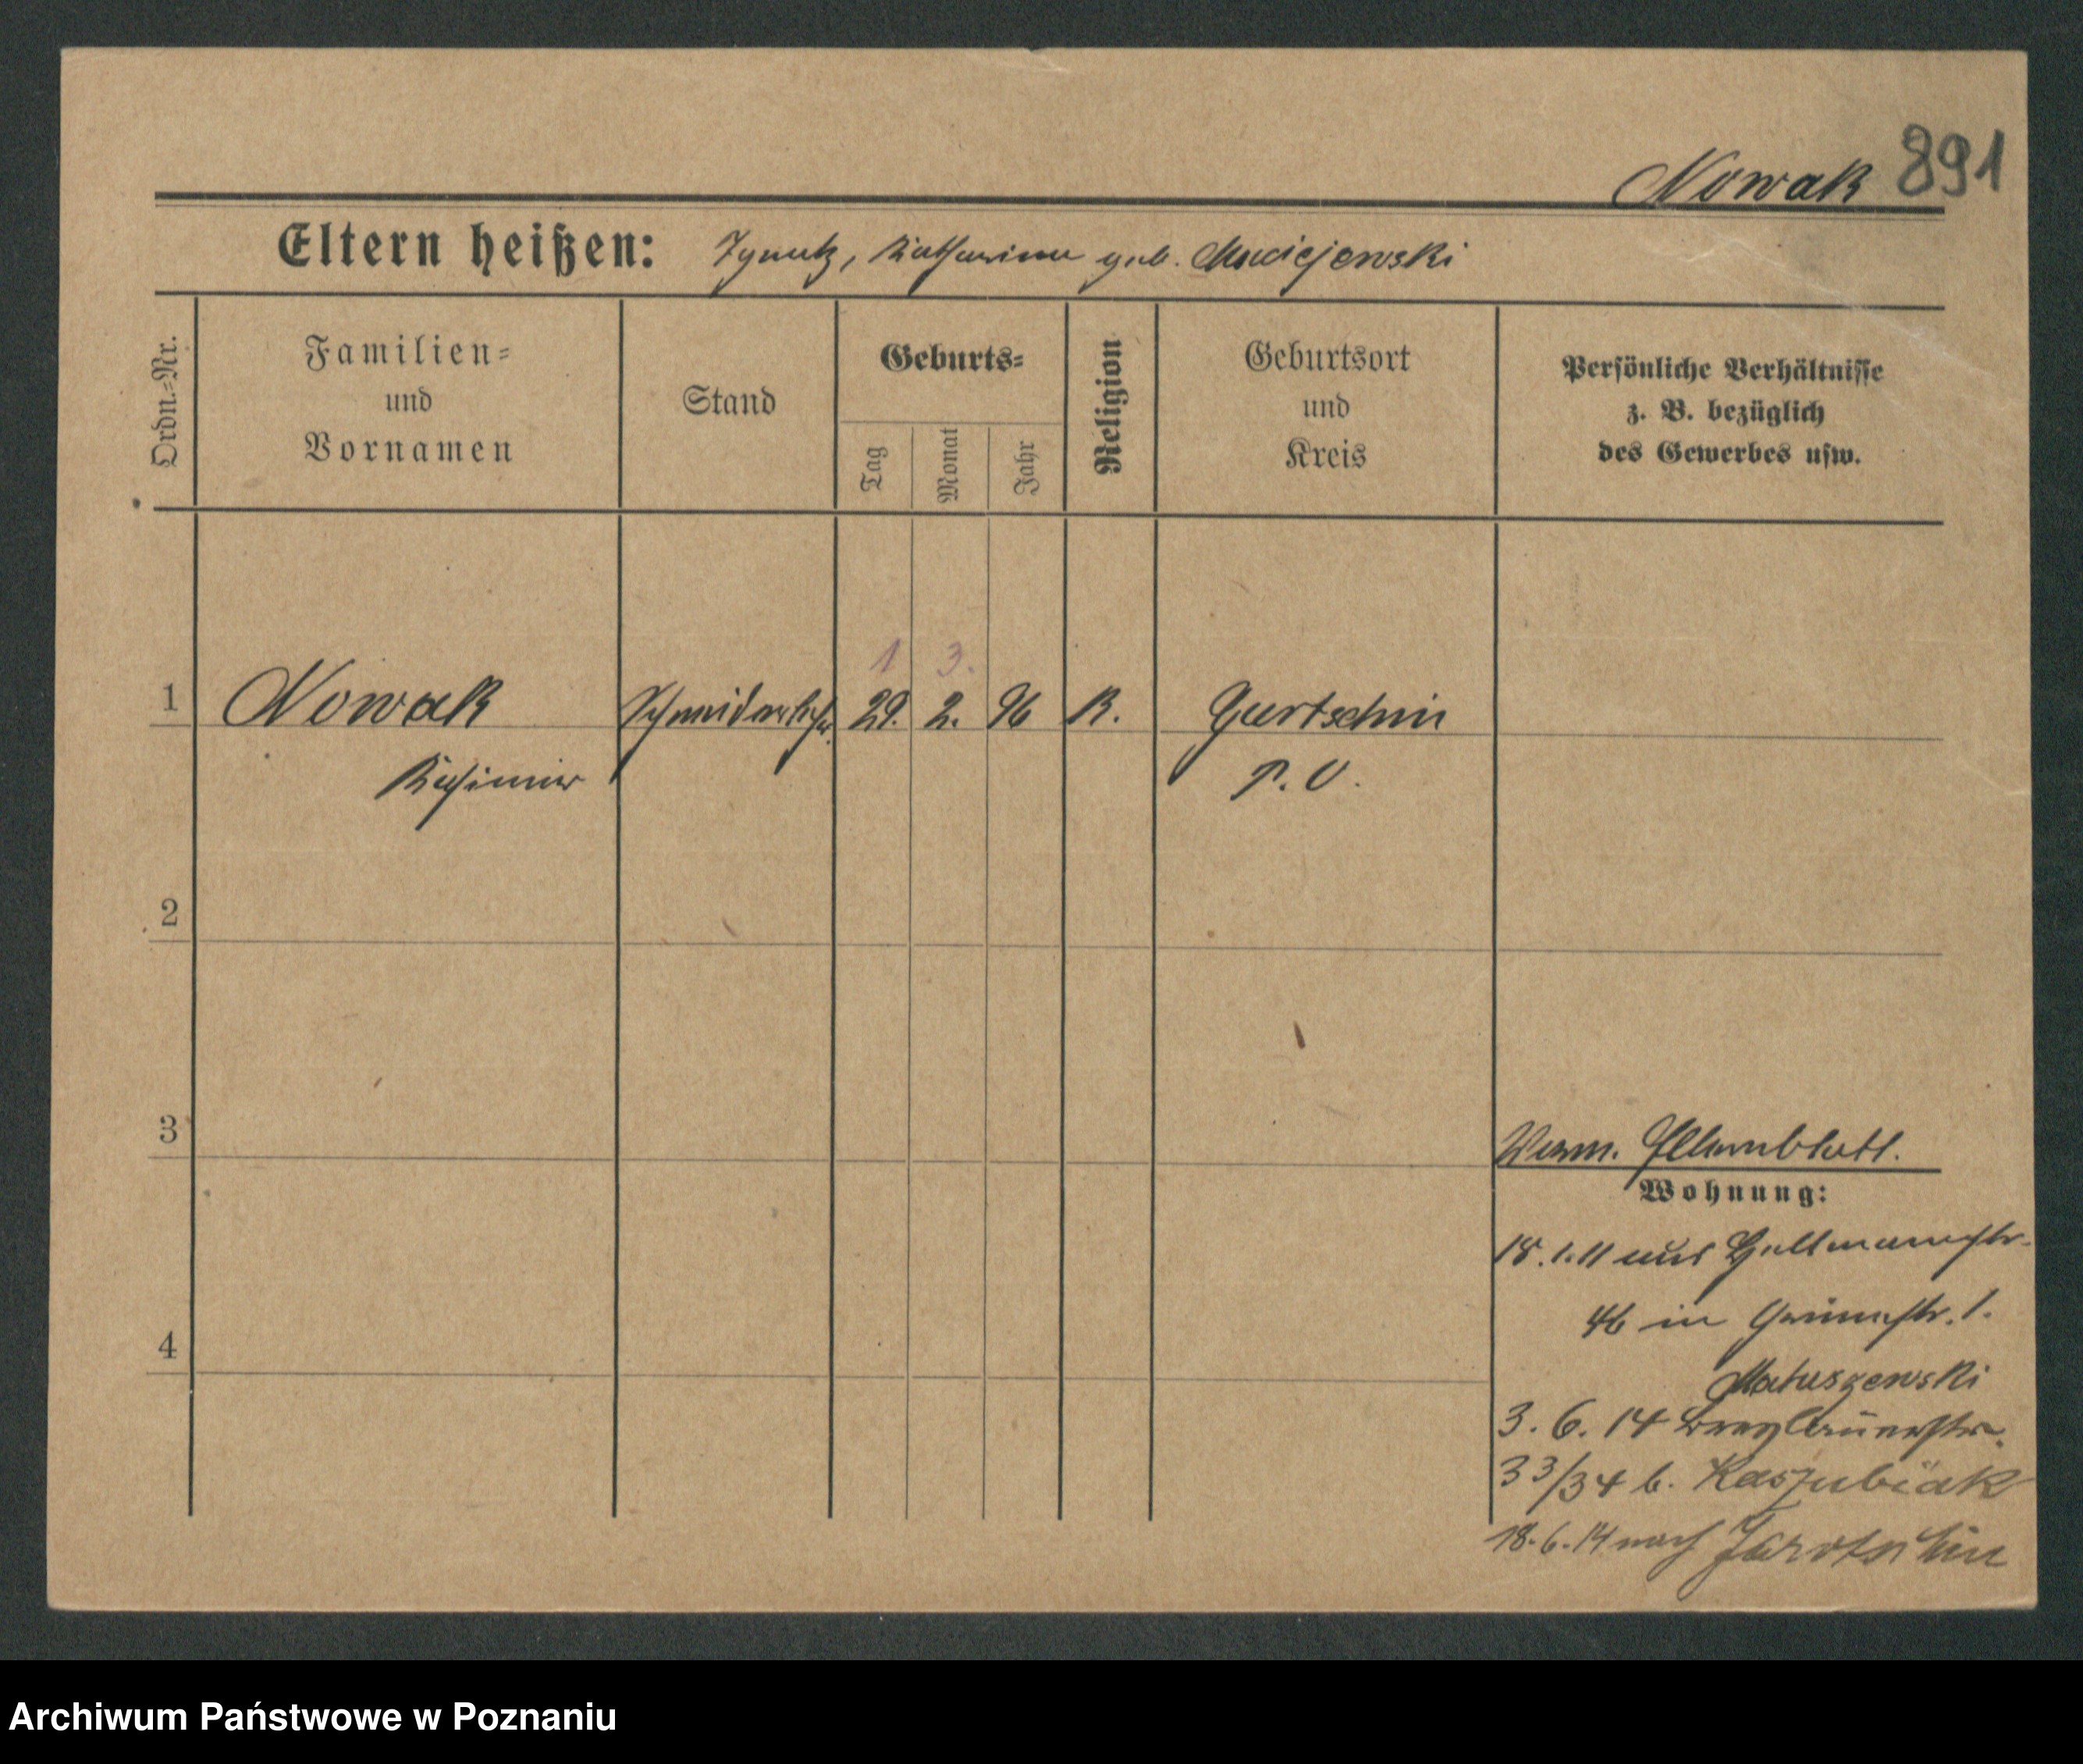 Nowak 891
Eltern heißen: Ignatz, Katharina geb. Maciejewski
Ordn.=Nr.
Familien=
und
Vornamen
Stand
Geburts=
Tag
Monat
Jahr
Religion
Geburtsort
und
Kreis
Persönliche Verhältnisse
z. B. bezüglich
des Gewerbes usw.
1 3.
1 Nowak Schneiderlehrl. 29. 2. 96 K. Gurtschin
Kasimir P. O.
2
3
Verm. Elternblatt.
Wohnung:
18.1.11 aus Hallmannstr.
4b in Grünestr. 1.
4
Matuszewski
3. 6. 14
33/34 b. Kaszubiak
18.6.14 nach Jarotschin
Archiwum Państwowe w Poznaniu